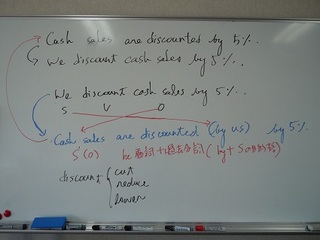 Cash sales are discounted by 5%.
We discount cash sales by 5%.
We discount cash sales by 5%.
S V O
Cash sales are discounted (by us) by 5%.
S'(O) be動詞+過去分詞 (by+Sの目的格)
discount { cut
reduce
lower